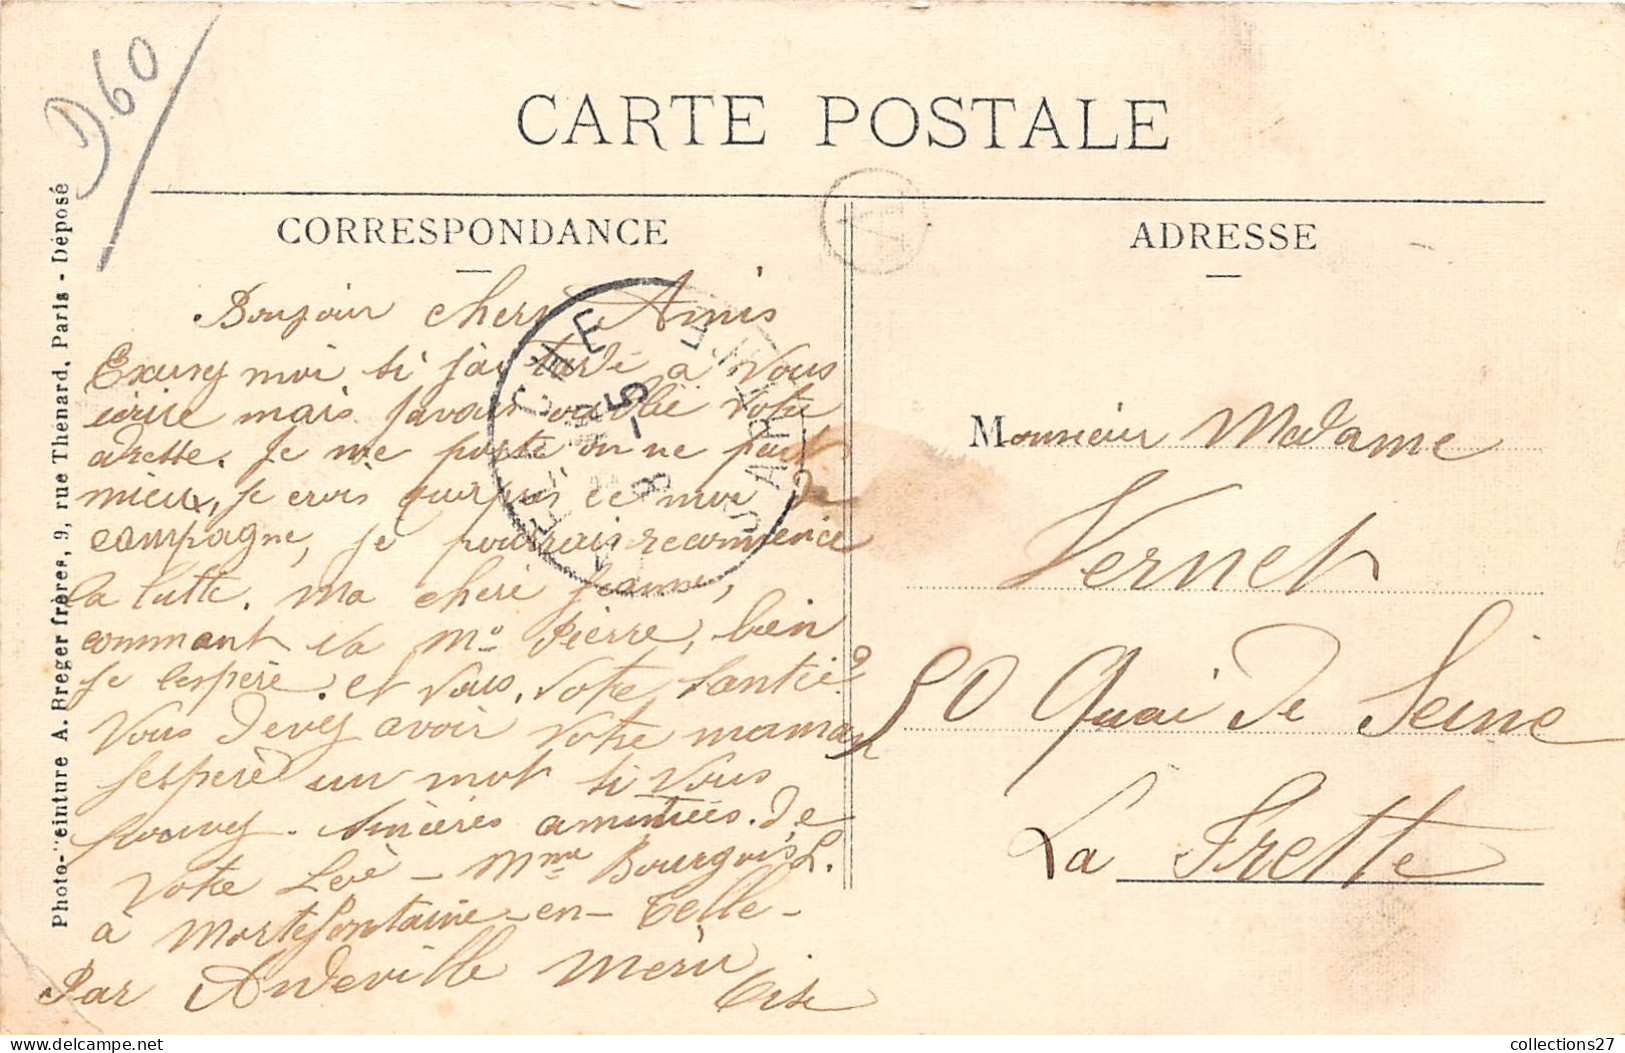 D60
CARTE POSTALE
CORRESPONDANCE
ADRESSE
Bonjour chers Amis
Excusez moi si j'ai tardé à vous
écrire mais j'avais oublié votre
adresse. Je me porte on ne peut
mieux, je crois qu'après ce moi de
campagne, je pourrais recommencé
la lutte. Ma chere Jeanne,
commant va Mr Pierre, bien
je l'espère. et vous, votre santié?
Vous devez avoir votre maman
j'espère un mot si vous
pouvez. Sincères amintiées. de
votre Leé - Mme Bourgois L.
à Mortefontaine-en-Telle-
Par Andeville Méru
Oise
Monsieur Madame
Vernet
50 Quai de Seine
La Frette
Photo-Peinture A. Breger frères, 9, rue Thénard, Paris - Déposé
A
-5
8
collections27